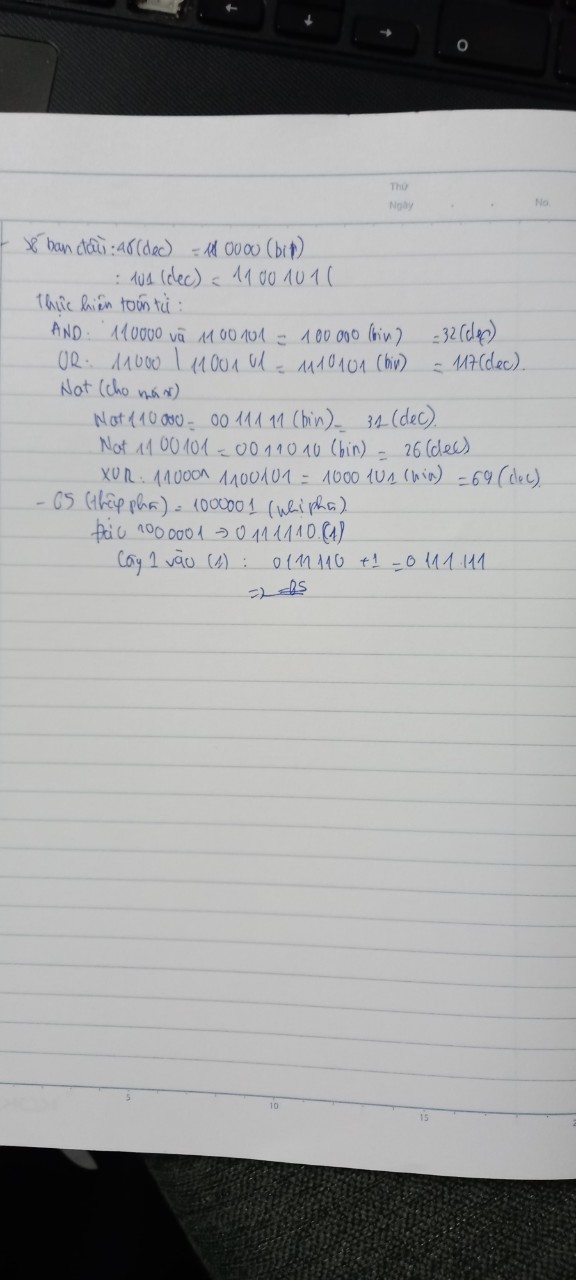 Thứ
Ngày . . No.
- Số ban đầu: 48 (dec) = 110000 (bin)
: 101 (dec) = 1100101 (
Thực hiện toán tử:
AND: 110000 và 1100101 = 100000 (bin) = 32 (dec)
OR: 11000 | 1100101 = 1110101 (bin) = 117 (dec).
Not (cho
Not 110000 = 0011111 (bin) = 31 (dec).
Not 1100101 = 0011010 (bin) = 26 (dec)
XOR: 11000^ 1100101 = 1000101 (bin) = 69 (dec).
- 65 (thập phân) = 1000001 (nhị phân)
Đảo 1000001 → 0111110 (1)
Cộng 1 vào (1) : 0111110 + 1 = 0111111
=>
5 10 15 2